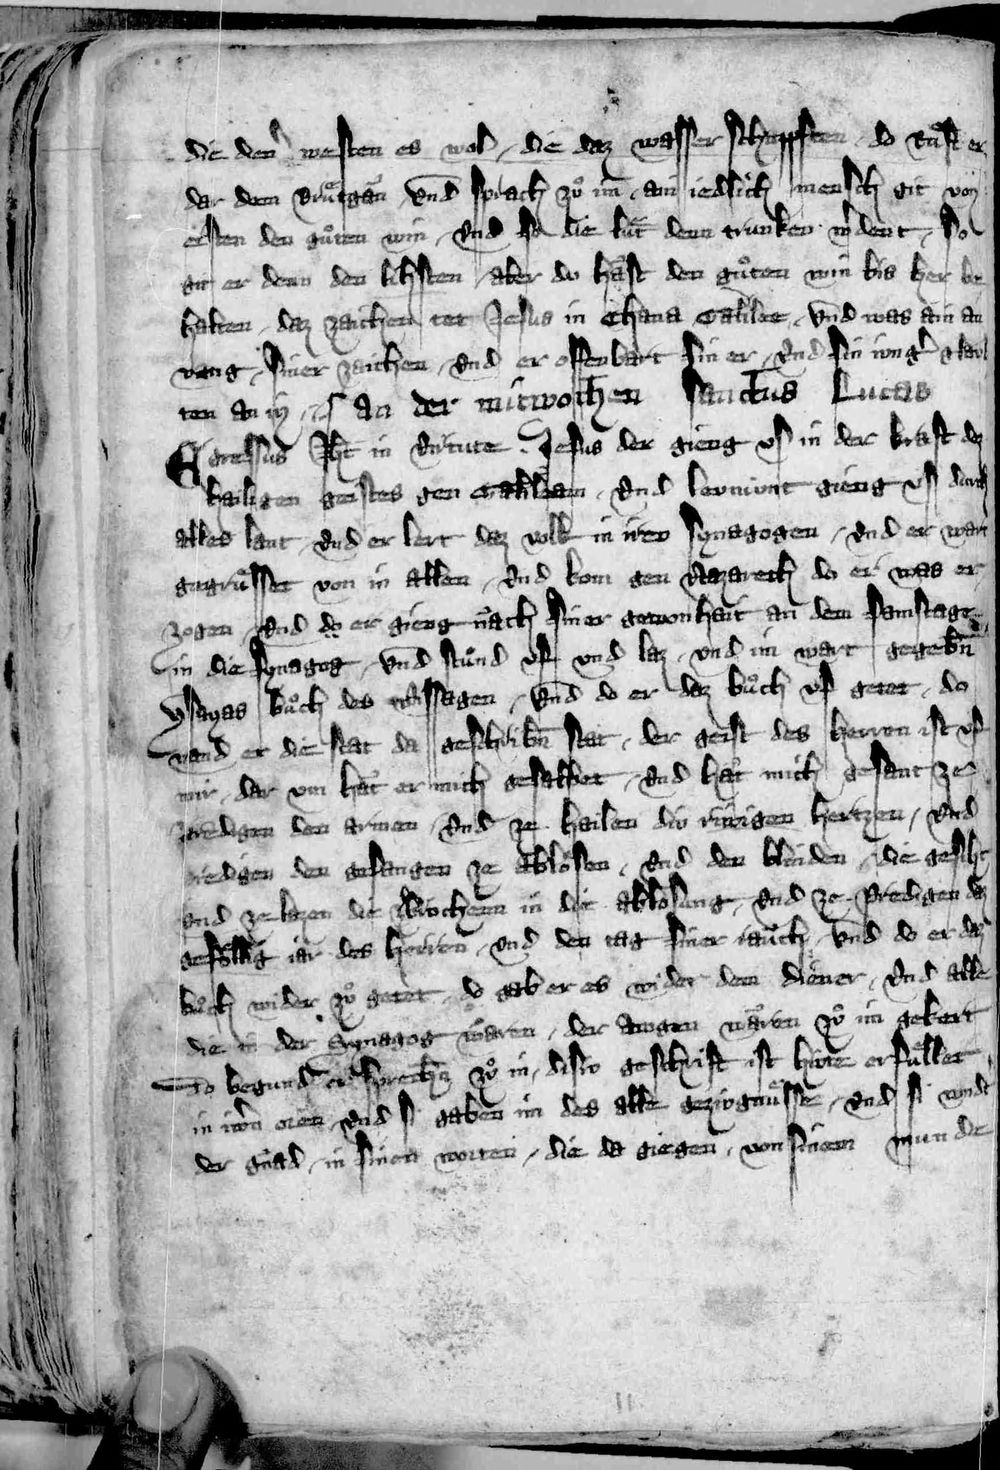 die dienˀ westen es wol / die daz wasser schupften / do růft er
dar dem brútgǎn vnd sprach zů im / ain iedlich mensch git von
ersten den gůten win / vnd so die lút denn trunken wˀdent / so
git er denn den bȯ̂sten / aber du hâst den gůten win bis her be
halten / daz zaichen tet Jesus in Chana Galilee / vnd was ain an
vang siner zaichen / vnd er offenbart sin er / vnd sin iungˀ glǒb
ten an in / an der mitwochen Sanctus Lucas
Egressus Jhc̄ in virtute / Jesus der gieng vs in der kraft dez
hailigen geistes gen Galileam / vnd levmunt gieng vs durch
alles lant / vnd er lert daz volk in iren synagogen / vnd er wart
gegrůsset von in allen / vnd kom gen Nazareth do er was er
zogen / vnd do er gieng nâch siner gewonhait an dem samstage
in die synagog / vnd stůnd vf vnd laz / vnd im wart gegebn̄
ysayas bůch des wissagen / vnd do er daz bůch vf getet / do
vand er die stat da geschribn̄ stat / der geist des herren ist vf
mir / dar vm hât er mich gesalbet / vnd hât mich gesant ze
predigen den armen / vnd ze hailen die rúwigen hertzen / vnd
predigen den gefangen ze ablösen / vnd den blinden / die gesiht
vnd ze lazen die zerbrochenn in die ablosung / vnd ze predigen daz
gefällig iar des herren / vnd den tag siner râch / vnd do er daz
bůch wider zů getet / do gab er es wider dem diener / vnd alle
die in der Synagog wâren / der ǒwgen wâren zů im gekert
do begund er sprechn̄ zů in / disiv geschrift ist hivte erfúllet
in iwˀn oren / vnd si gaben im des alle gezivgnússe / vnd si wndˀ
der gnâd / in sinen worten / die da giegen / von sinem munde
11